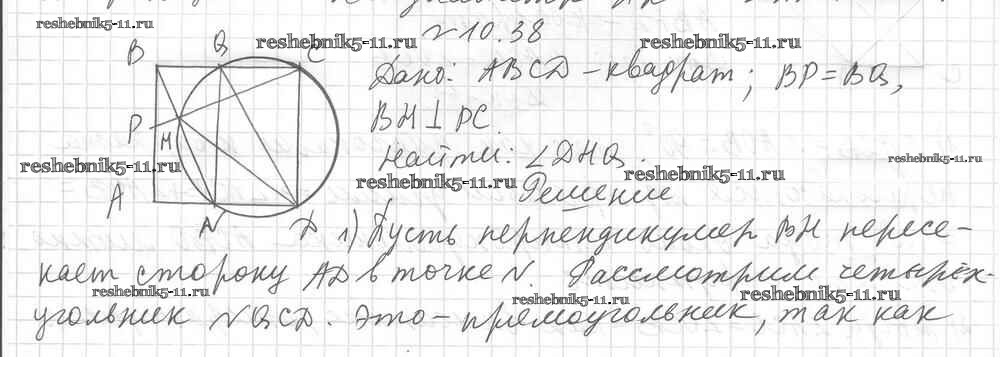 reshebnik5-11.ru
№10.38
reshebnik5-11.ru
reshebnik5-11.ru
B Q C
Дано: ABCD – квадрат; BP = BQ,
P
BH ⊥ PC.
H
Найти: ∠DHQ.
reshebnik5-11.ru
reshebnik5-11.ru
reshebnik5-11.ru
reshebnik5-11.ru
Решение
A N D
1) Пусть перпендикуляр BH пересе-
кает сторону AD в точке N. Рассмотрим четырёх-
reshebnik5-11.ru
reshebnik5-11.ru
reshebnik5-11.ru
угольник NQCD. Это – прямоугольник, так как